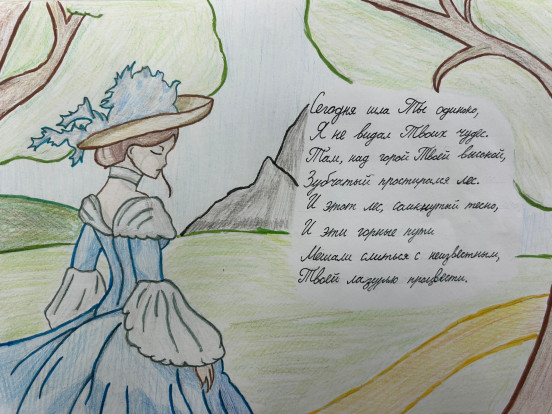 Сегодня шла Ты одиноко,
Я не видал Твоих чудес.
Там, над горой Твоей высокой,
Зубчатый простирался лес.
И этот лес, сомкнутый тесно,
И эти горные пути
Мешали слиться с неизвестным,
Твоей лазурью процвести.